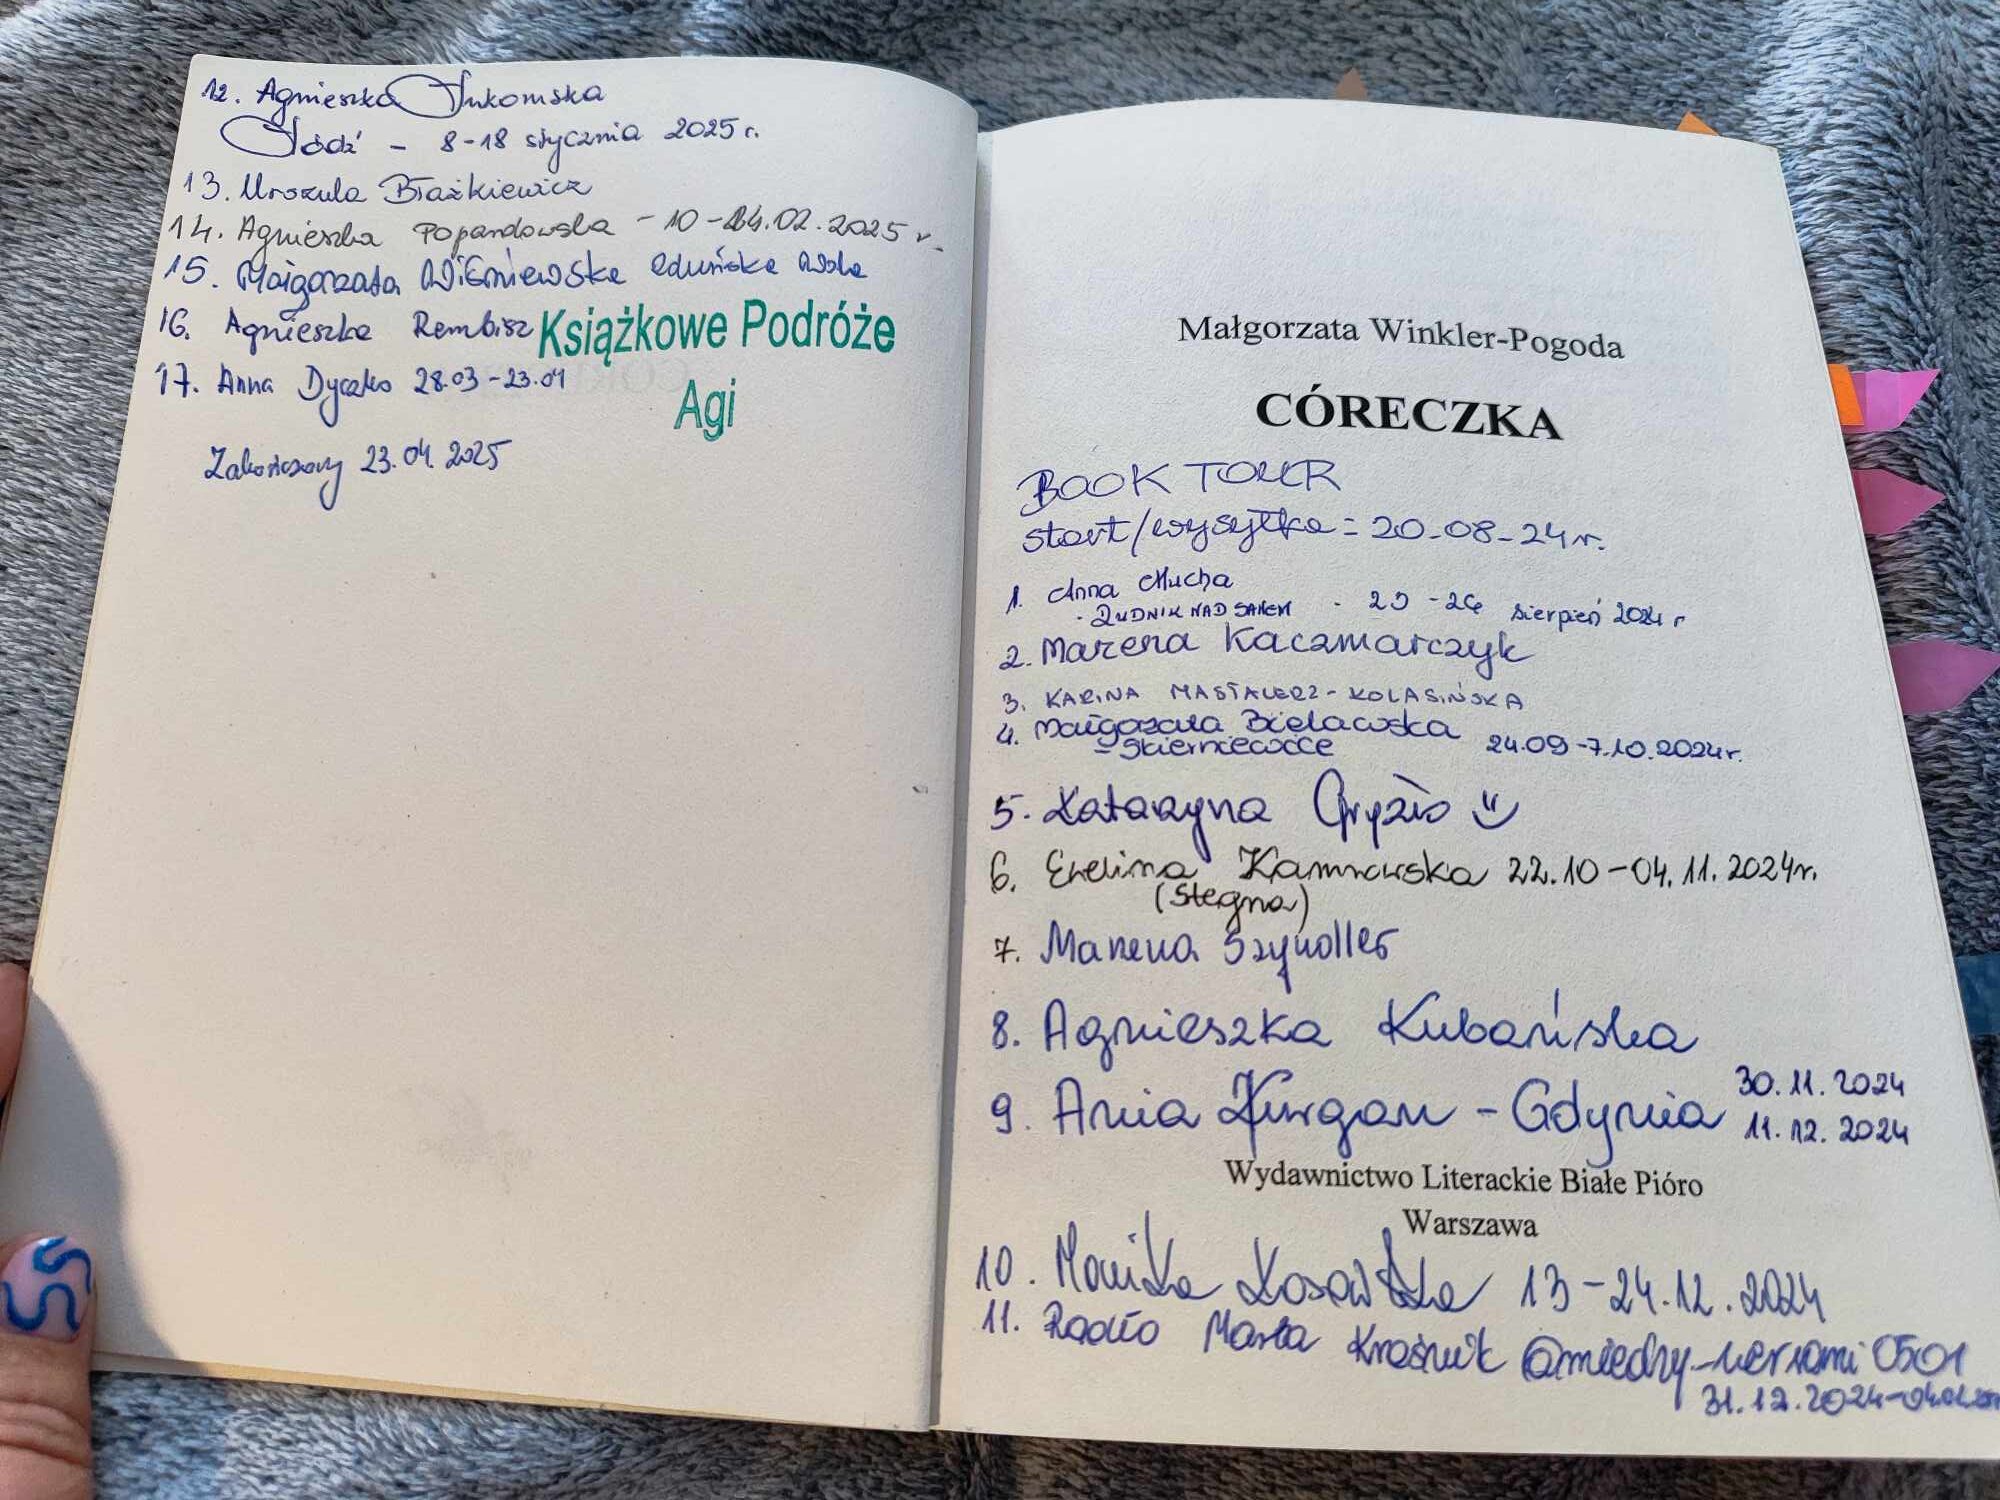 12. Agnieszka Łukomska
Łódź - 8-18 stycznia 2025 r.
13. Urszula Błażkiewicz
14. Agnieszka Popandowska - 10-24.02.2025 r.
15. Małgorzata Wiśniewska Zduńska Wola
16. Agnieszka Rembisz
Książkowe Podróże
Agi
17. Anna Dyczko 28.03-23.04
Zakończony 23.04.2025
Małgorzata Winkler-Pogoda
CÓRECZKA
BOOK TOUR
start/wysyłka = 20-08-24 r.
1. Anna Mucha
- RUDNIK NAD SANEM - sierpień 2024 r
2. Marzena Kaczmarczyk
3. KARINA MASTALERZ-KOLASIŃSKA
4. Małgorzata Bielawska
- Skierniewice 24.09-7.10.2024r.
5. Katarzyna
6. Ewelina 22.10-04.11.2024r.
(Stegna)
7. Marzena
8. Agnieszka Kubańska
9. Ania Kurgan - Gdynia 30.11.2024
11.12.2024
Wydawnictwo Literackie Białe Pióro
Warszawa
10. Monika Kosowska 13-24.12.2024
11. Marta Kraśnik
31.12.2024-